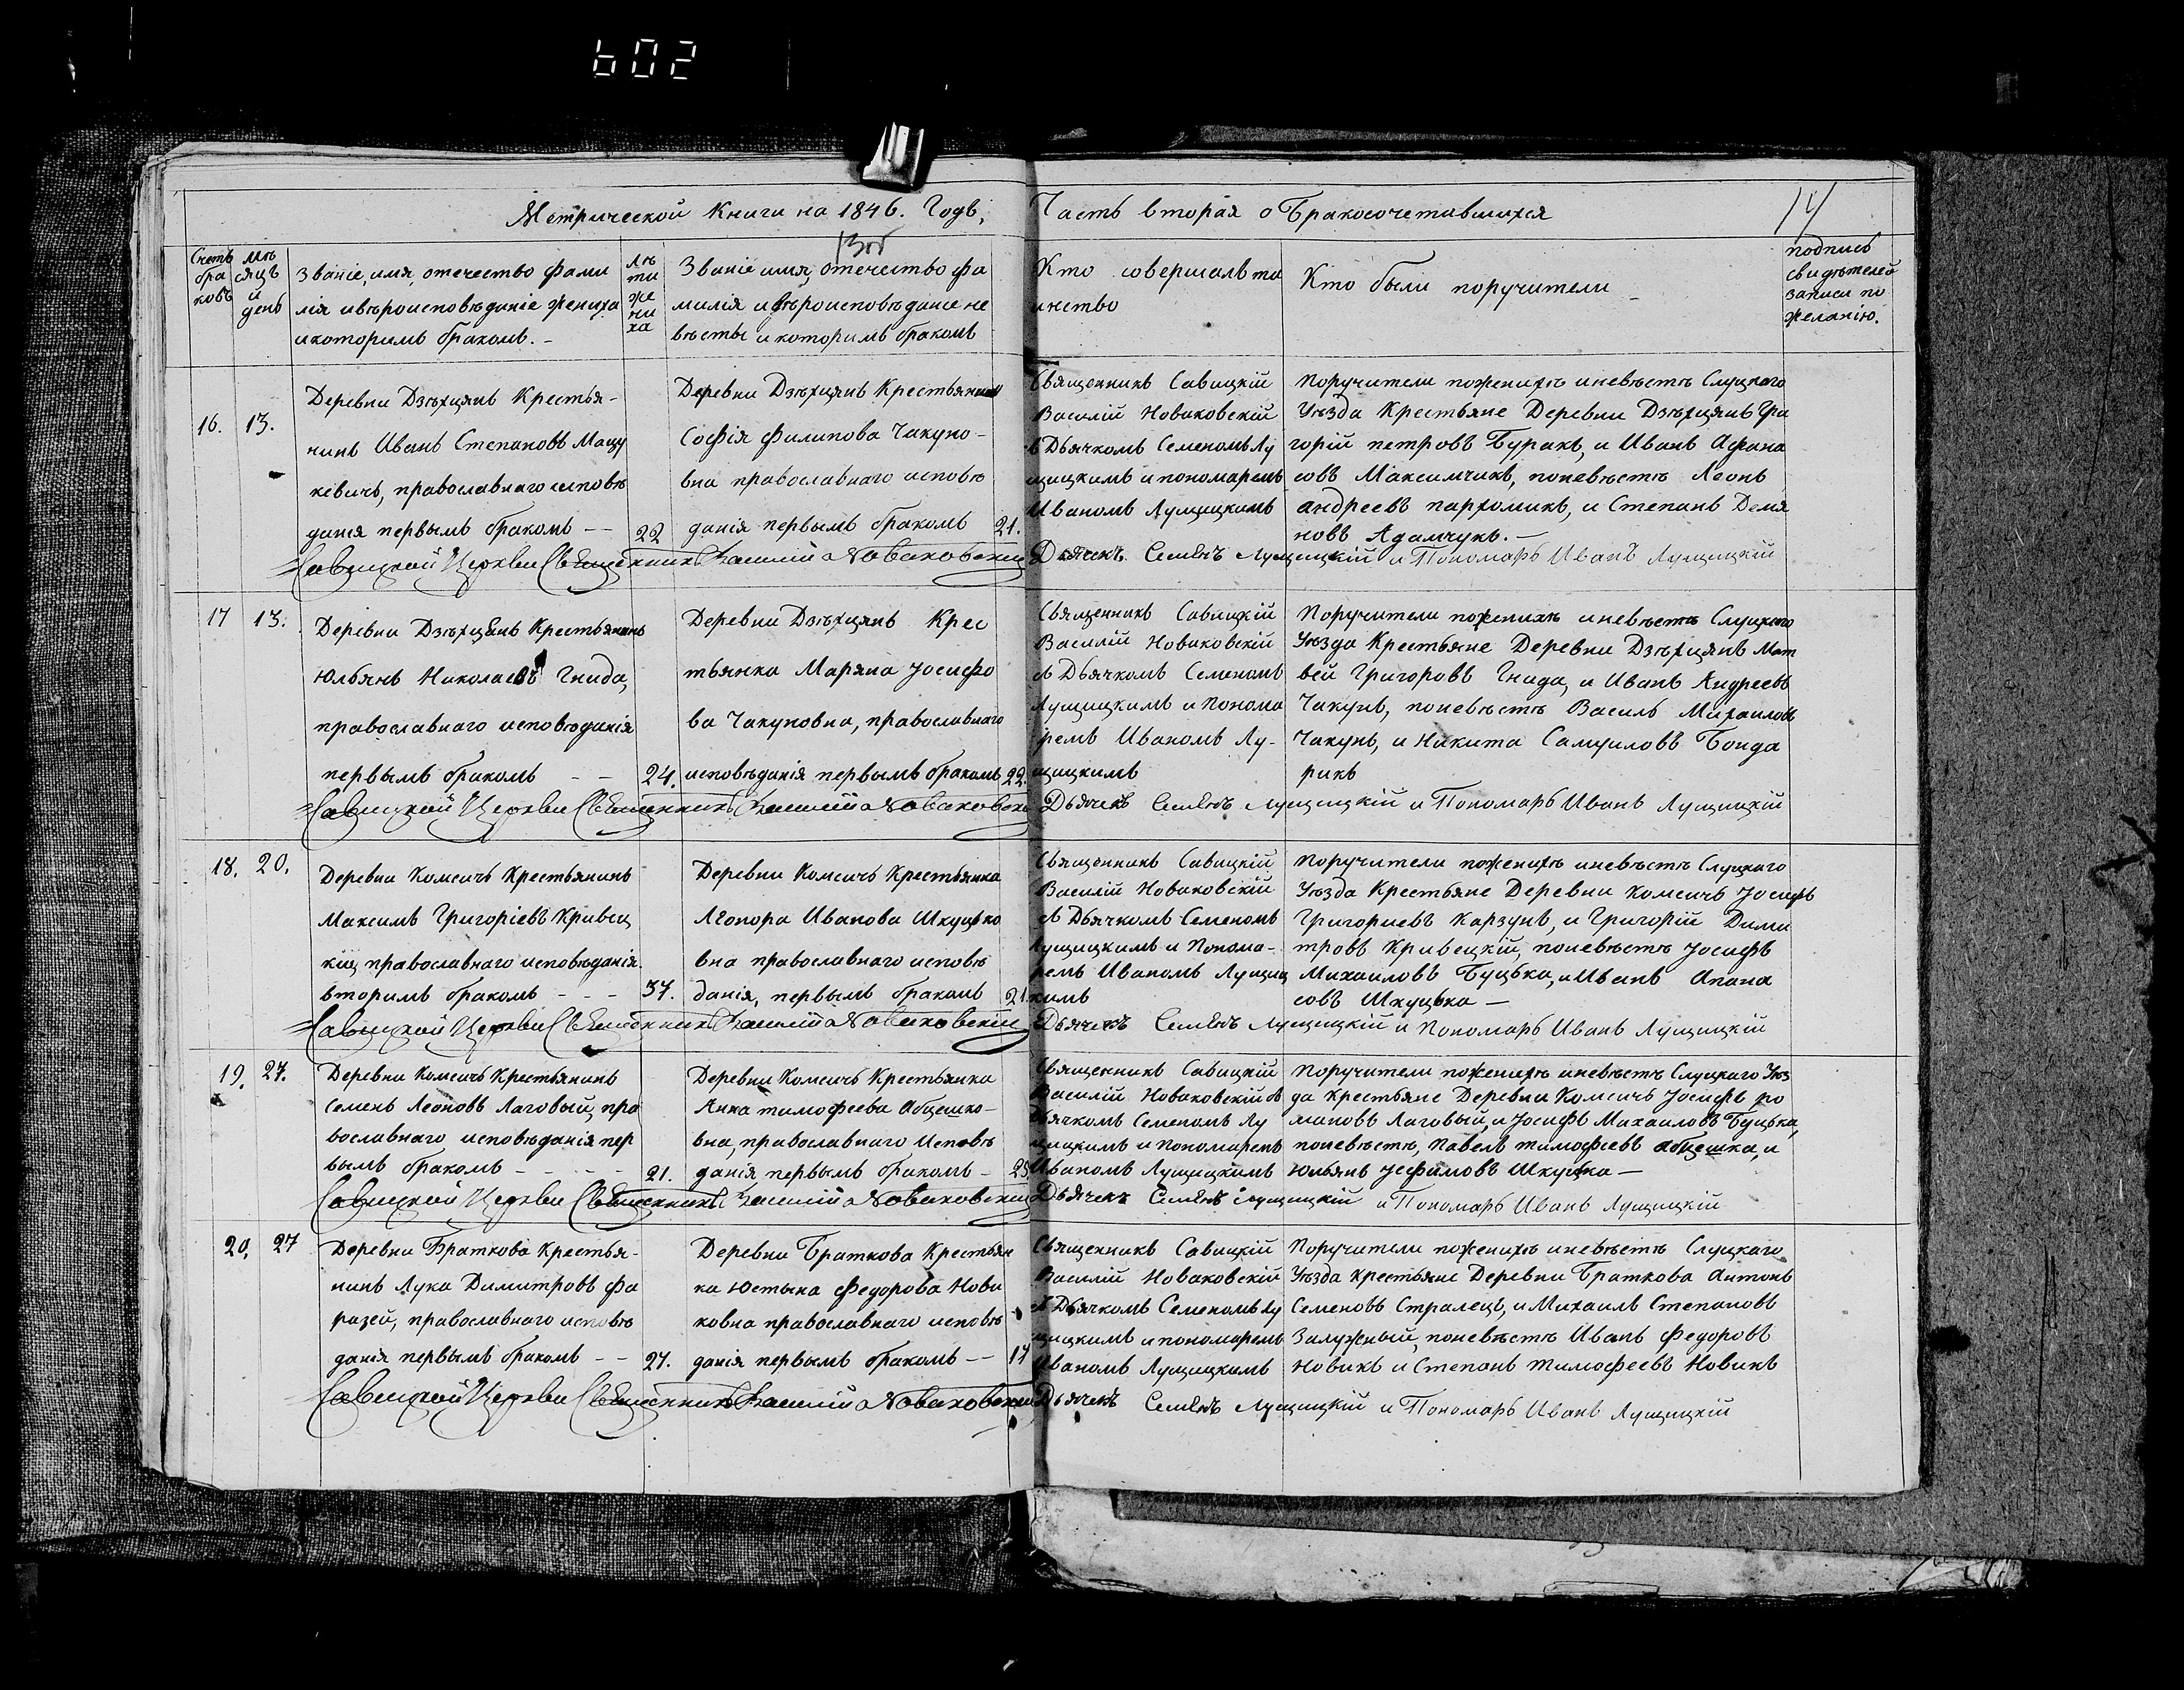 602
Метрической Книги на 1846. Годъ,
Часть вторая о Бракосочетавшихся
14
13об
Счетъ
бра
ковъ
Мѣ
сяцъ
и
день
Званіе, имя, отечество фами
лія и вѣроисповѣданіе жениха
и которимъ бракомъ. -
Лѣ
та
же
ни
ха
Званіе имя, отечество фа
милія и вѣроисповѣданіе не
вѣсты и которимъ бракомъ
Кто совершалъ та
инство
Кто были поручители -
подпись
свидѣтелей
записи по
желанію.
16.
13.
Деревни Дзѣхцянъ Крестья-
нинъ Иванъ Степановъ Мацу
кевичъ, православнаго исповѣ
данія первымъ бракомъ --
22
Деревни Дзѣхцянъ Крестьянка
Софія Филипова Чакуно-
вна православнаго исповѣ
данія первымъ бракомъ
21.
Священникъ Савицкій
Василій Новаковскій
съ Дьячкомъ Семеномъ Лу
щицкимъ и пономаремъ
Иваномъ Лущицкимъ
Поручители по женихѣ и невѣстѣ Слуцкаго
Уѣзда Крестьяне Деревни Дзѣхцянъ Гри
горій петровъ Буракъ, и Иванъ Афана
совъ Максимчикъ, по невѣстѣ Леонъ
андреевъ пархомикъ, и Степанъ Демя
новъ Адамчукъ. -
Савицкой Церкви Священникъ Василій Новаковскій
Дьячекъ Семѣнъ Лущицкій и Пономарь Иванъ Лущицкій
17
13.
Деревни Дзѣхцянъ Крестьянинъ
Юльянъ Николаевъ Гнида,
православнаго исповѣданія
первымъ бракомъ - -
24.
Деревни Дзѣхцянъ Крес
тьянка Маряна Јосифо
ва Чакуновна, православнаго
исповѣданія первымъ бракомъ
22.
Священникъ Савицкій
Василій Новаковскій
съ Дьячкомъ Семеномъ
Лущицкимъ и Понома
ремъ Иваномъ Лу-
щицкимъ
Поручители по женихѣ и невѣстѣ Слуцкаго
Уѣзда Крестьяне Деревни Дзѣхцянъ Мат
вей Григоровъ Гнида, и Иванъ Андреевъ
Чакунъ, по невѣстѣ Василь Михаиловъ
Чакунъ, и Никита Самуиловъ Бонда
рикъ
Савицкой Церкви Священникъ Василій Новаковскій
Дьячекъ Семѣнъ Лущицкій и Пономарь Иванъ Лущицкій
18.
20.
Деревни Комсичъ Крестьянинъ
Максимъ Григоріевъ Кривец
кій, православнаго исповѣданія.
вторимъ бракомъ - - -
37.
Деревни Комсичъ Крестьянка
Леонора Иванова Шкуцько
вна православнаго исповѣ
данія, первымъ бракомъ
21.
Священникъ Савицкій
Василій Новаковскій
съ Дьячкомъ Семеномъ
Лущицкимъ и Понома-
ремъ Иваномъ Лущиц
кимъ
Поручители по женихѣ и невѣстѣ Слуцкаго
Уѣзда Крестьяне Деревни Комсичъ Јосифъ
Григориевъ Карзунъ, и Григорій Дими
тровъ Кривецкій, по невѣстѣ Јосифъ
Михаиловъ Буцька, и Иванъ Апана
совъ Шкуцька -
Савицкой Церкви Священникъ Василій Новаковскій
Дьячекъ Семѣнъ Лущицкій и Пономарь Иванъ Лущицкій
19.
27.
Деревни Комсичъ Крестьянинъ
Семенъ Леоновъ Лаговый, пра
вославнаго исповѣданія пер
вымъ бракомъ - - - -
21.
Деревни Комсичъ Крестьянка
Анна тимофеева Абцешко-
вна, православнаго Исповѣ
данія, первымъ бракомъ -
23.
Священникъ Савицкій
Василій Новаковскій съ
Дьячкомъ Семеномъ Лу
щицкимъ и Пономаремъ
Иваномъ Лущицкимъ
Поручители по женихѣ и невѣстѣ Слуцкаго Уѣз
да Крестьяне Деревни Комсичъ Јосифъ ро
мановъ Лаговый, и Јосифъ Михаиловъ Буцька,
по невѣстѣ, Павелъ тимофеевъ абцешка, и
Юльянъ Јефимовъ Шкуцька -
Савицкой Церкви Священникъ Василій Новаковскій
Дьячекъ Семѣнъ Лущицкій и Пономарь Иванъ Лущицкій
20.
27
Деревни Браткова Крестья-
нинъ Лука Димитровъ Фа
разей, православнаго исповѣ
данія первымъ бракомъ --
27.
Деревни Браткова Крестьян
ка Юстына Федорова Нови
ковна православнаго исповѣ
данія первымъ бракомъ --
17
Священникъ Савицкій
Василій Новаковскій
съ Дьячкомъ Семеномъ Лу
щицкимъ и пономаремъ
Иваномъ Лущицкимъ
Поручители по женихѣ и невѣстѣ Слуцкаго
Уѣзда Крестьяне Деревни Браткова Антонъ
Семеновъ Стралецъ, и Михаилъ Степановъ
Залужный, по невѣстѣ Иванъ Федоровъ
Новикъ и Степанъ Тимофеевъ Новикъ
Савицкой Церкви Священникъ Василій Новаковскій
Дьячекъ Семѣнъ Лущицкій и Пономарь Иванъ Лущицкій